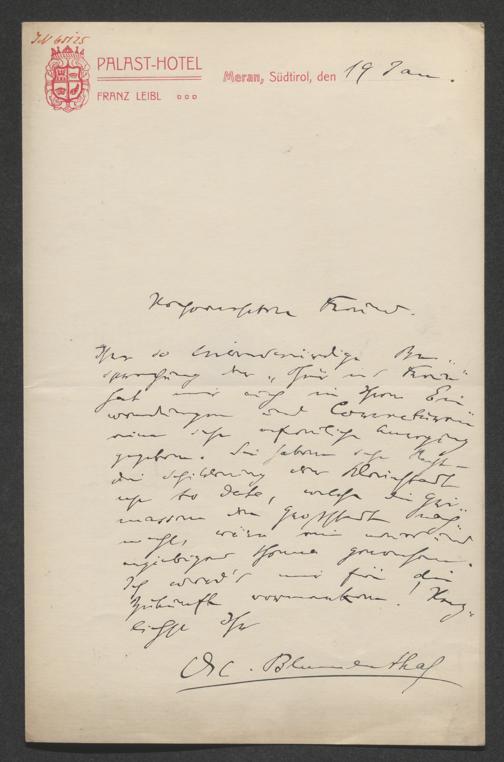 IN 65125
PALAST-HOTEL
FRANZ LEIBL
Meran, Südtirol, den 19 Jan.
Hochverehrter Freund.
Ihre so liebenswürdige Be-
sprechung der „
hat mir auch in Ihren Ein
wendungen und Correcturen
eine sehr Anregung
gegeben. Sie haben sehr Recht –
die Schilderung der Kleinstadt
up to date, welche die Gri-
massen der Großstadt nach
macht, wäre ein
ergiebiges Thema gewesen.
Ich werd's mir für die
Zukunft vormerken! Herz-
lichst Ihr
Osc. Blumenthal